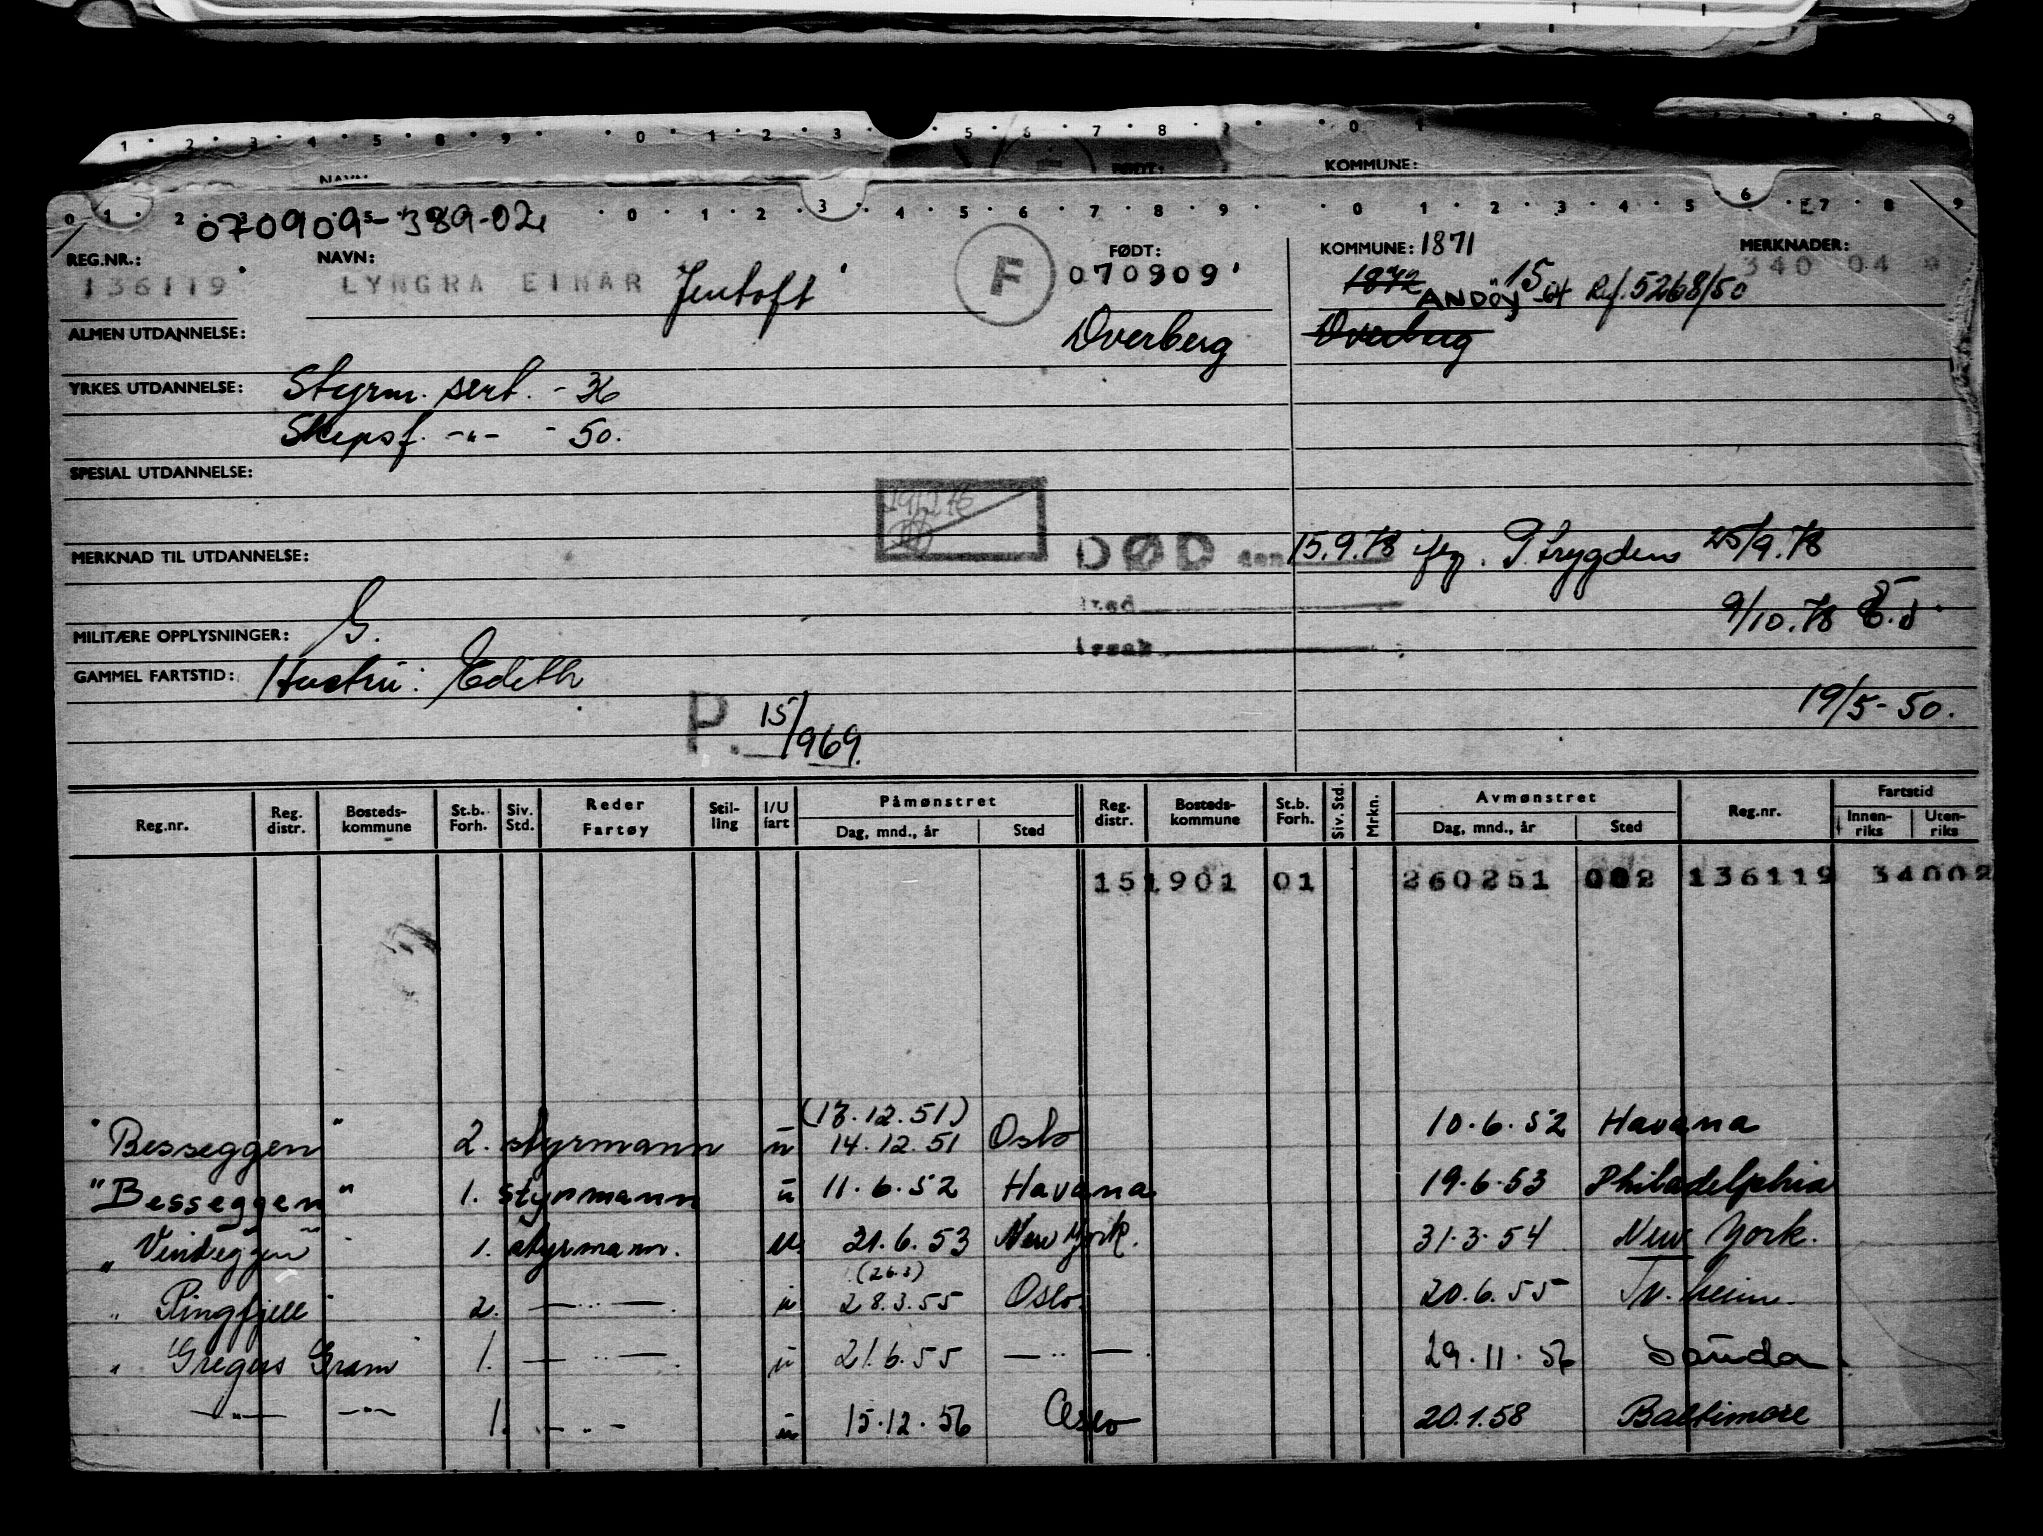 070909-389-02
REG.NR.: NAVN: FØDT: KOMMUNE: 1871 MERKNADER:
136119 LYNGRA EINAR Jentoft F 070909 1872 ANDÖY 15 Ref. 5268/50 340 04
ALMEN UTDANNELSE: Dverberg Dverberg
YRKES UTDANNELSE: Styrm. sert. - 36
Skipsf. -"- - 50.
SPESIAL UTDANNELSE:
MERKNAD TIL UTDANNELSE: DØD den 15.9.78 P.trygdens 25/9.78
9/10.78
MILITÆRE OPPLYSNINGER: G.
GAMMEL FARTSTID: Hustru: Edith
19/5-50.
P. 15/969.
Reg.nr. Reg. distr. Bosteds-kommune St.b. Forh. Siv. Std. Reder Fartøy Stil-ling I/U fart Påmønstret Dag, mnd., år Sted Reg. distr. Bosteds-kommune St.b. Forh. Siv. Std. Mrkn. Avmønstret Dag, mnd., år Sted Reg.nr. Fartstid Innen-riks Uten-riks
151901 01 260251 002 136119 34002
(13.12.51)
"Besseggen" 2. styrmann u 14.12.51 Oslo 10.6.52 Havana
"Besseggen" 1. styrmann u 11.6.52 Havana 19.6.53 Philadelphia
"Vindeggen" 1. styrmann. u 21.6.53 New York. 31.3.54 New York.
(26.3)
" Ringfjell" 2. -"- u 28.3.55 Oslo. 20.6.55 Tr.heim.
" Gregers Gram 1. -"- u 21.6.55 -"- 29.11.56 Sauda
-"- -"- 1. -"- u 15.12.56 Oslo 20.1.58 Baltimore